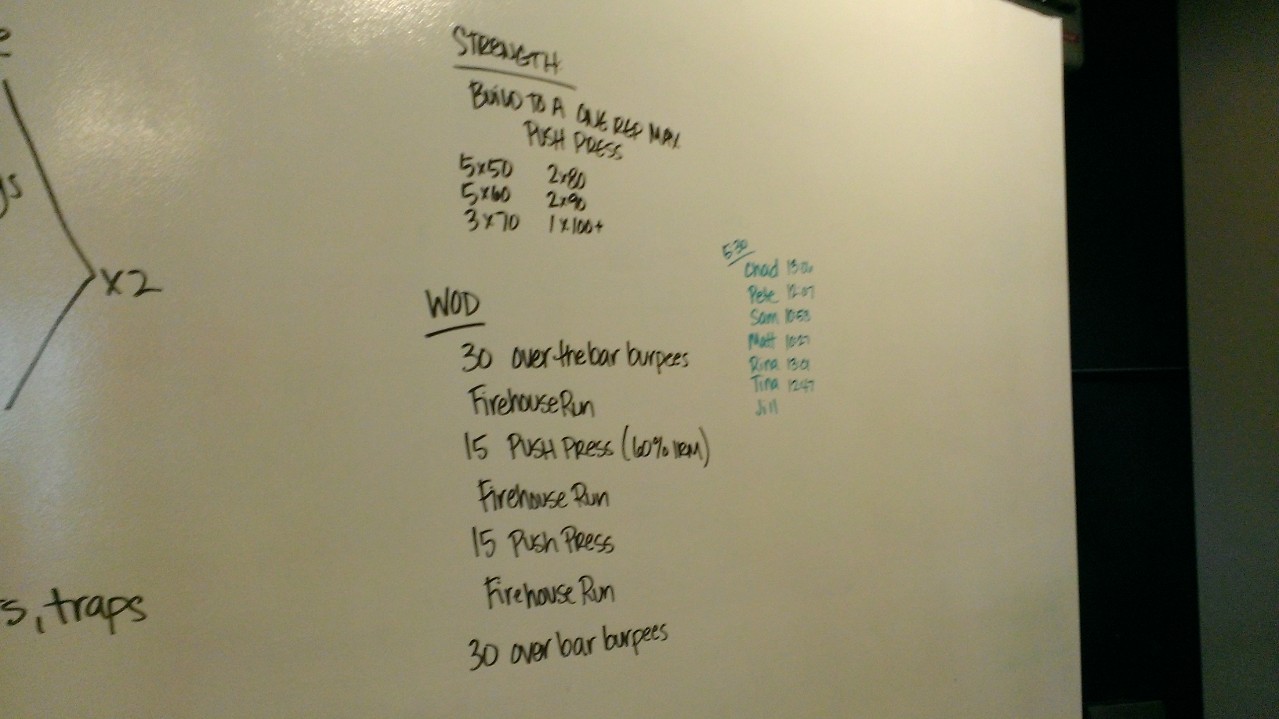 x2
s, traps
STRENGTH
BUILD TO A ONE REP MAX
PUSH PRESS
5x50 2x80
5x60 2x90
3x70 1x100+
WOD
30 over-the bar burpees
Firehouse Run
15 PUSH PRESS (60% 1RM)
Firehouse Run
15 Push Press
Firehouse Run
30 over bar burpees
530
Chad
Pete 12:07
Sam 10:53
Matt
Rina
Tina 12:47
Jill